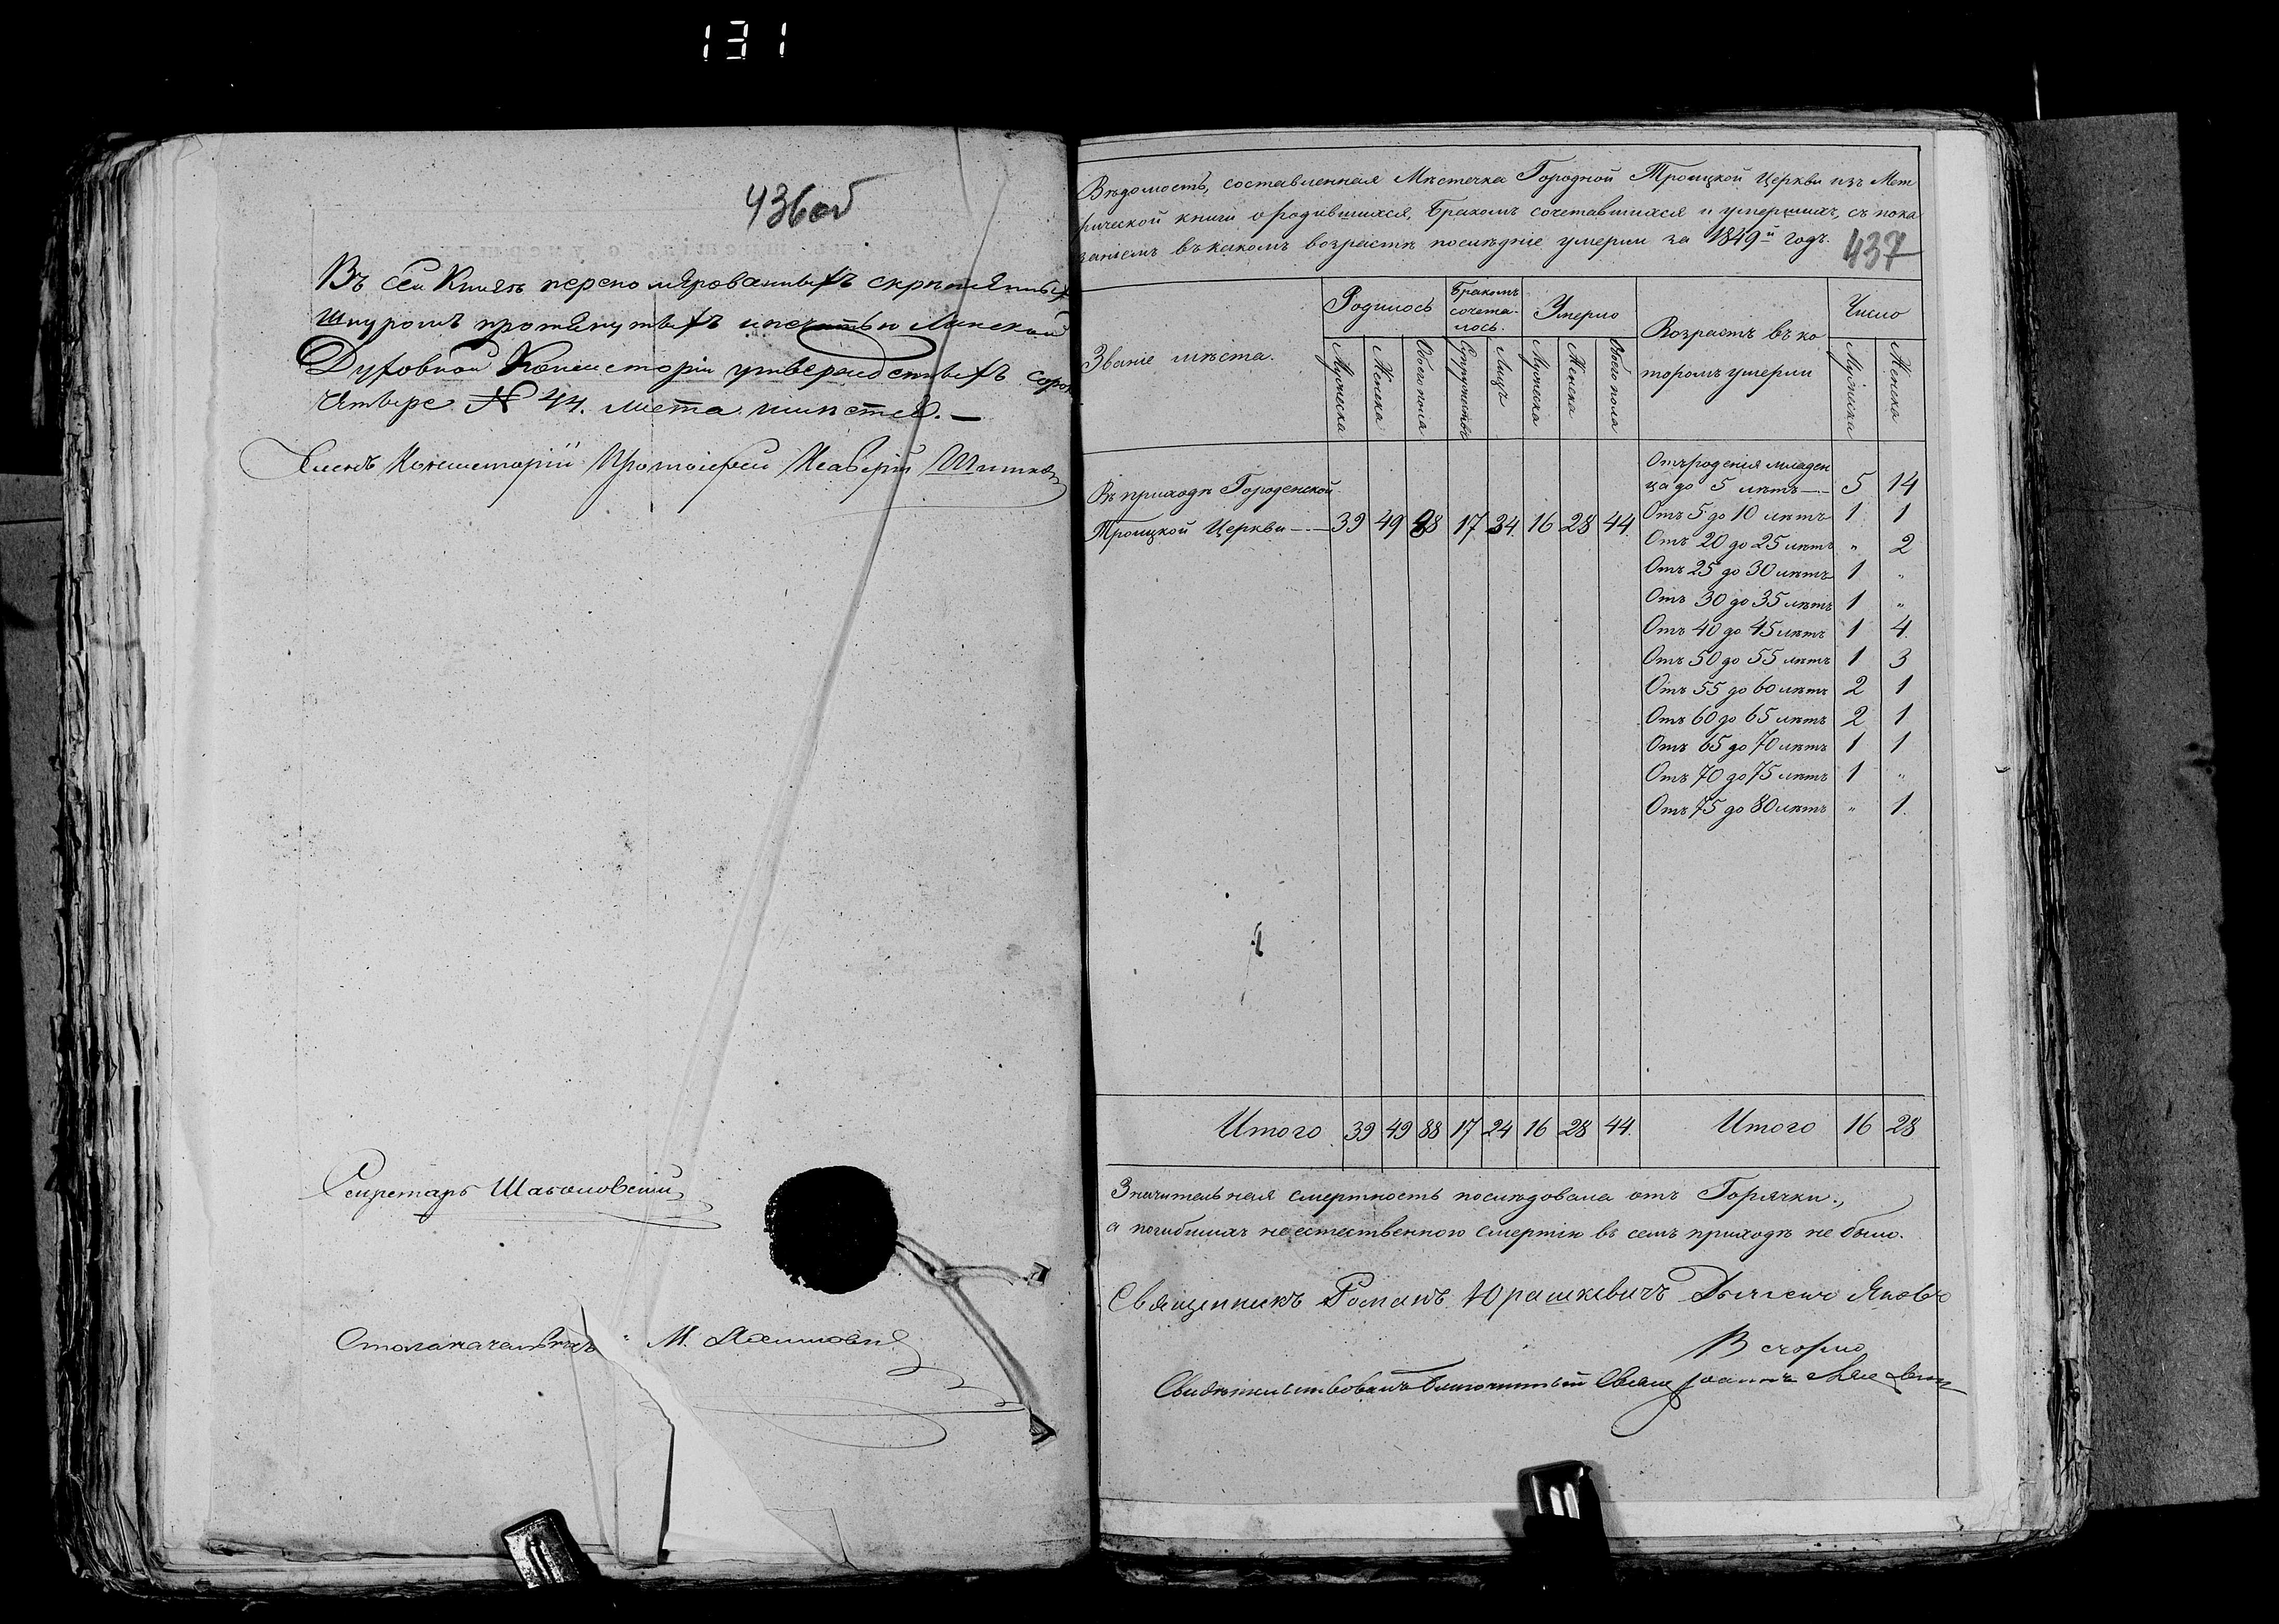 131
436об
Въ сей Книгѣ перенумерованныхъ скрѣпленныхъ
шнуромъ протянутыхъ и печатью Минской
Духовной Консисторіи утвержденныхъ сорокъ
четыре № 44. листа имѣется. —
Членъ Консисторіи Протоіерей Ксаверій
Секретарь
Столоначальникъ М.
Вѣдомость, составленная Мѣстечка Городной Троицкой Церкви изъ Мет
рической книги о родившихся, бракомъ сочетавшихся и умершихъ, съ пока
заніемъ въ какомъ возрастѣ послѣдніе умерли за 1849й годъ.
437
Званіе мѣста.
Родилось
Бракомъ сочета-
лось.
Умерло
Возрастъ въ ко
торомъ умерли
Число
Мужеска
Женска
Обоего пола
Супружествъ
Лицъ
Мужеска
Женска
Обоего пола
Мужеска
Женска
Въ приходѣ Городенской
Троицкой Церкви — 39 49 88 17 34. 16 28 44.
Отъ рожденія младен
ца до 5 лѣтъ — 5 14
Отъ 5 до 10 лѣтъ 1 1
Отъ 20 до 25 лѣтъ " 2
Отъ 25 до 30 лѣтъ 1 "
Отъ 30 до 35 лѣтъ 1 "
Отъ 40 до 45 лѣтъ 1 4.
Отъ 50 до 55 лѣтъ 1 3
Отъ 55 до 60 лѣтъ 2 1
Отъ 60 до 65 лѣтъ 2 1
Отъ 65 до 70 лѣтъ 1 1
Отъ 70 до 75 лѣтъ 1 "
Отъ 75 до 80 лѣтъ " 1.
Итого 39 49 88 17 24 16 28 44. Итого 16 28
Значительная смертность послѣдовала отъ Горячки.,
а погибшихъ неестественною смертію въ семъ приходѣ не было.
Священникъ Романъ Юрашкевичъ Дьячекъ Яковъ
Свидѣтельствовалъ Благочинный Свящ Іоаннъ